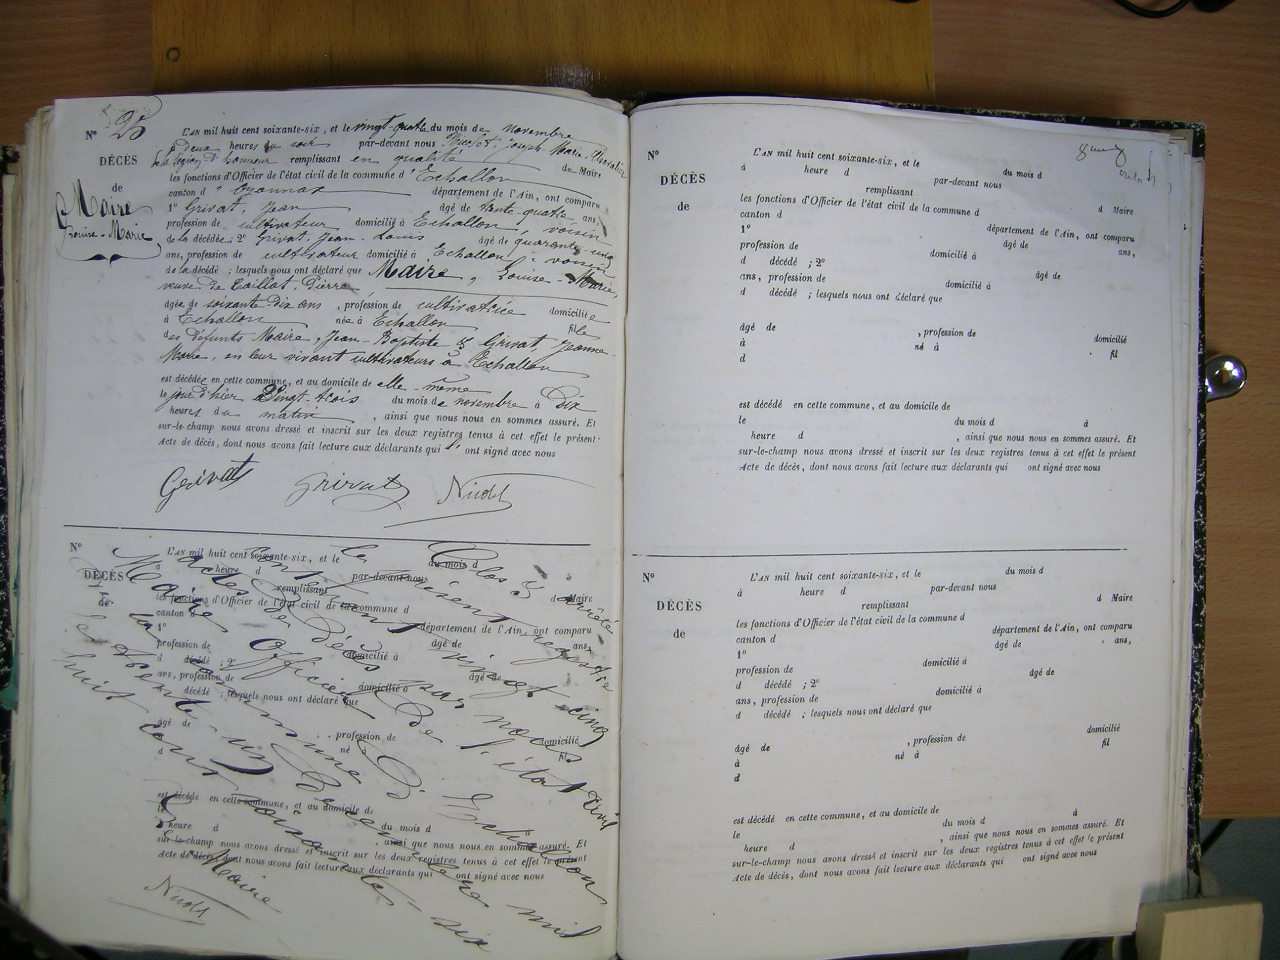 Nº 25
DÉCÈS
de
Maire
Louise-Marie
L'AN mil huit cent soixante-six, et le vingt-quatre du mois de novembre
à deux heures du soir par-devant nous Joseph-Marie, Chevalier
de la légion d'honneur remplissant en qualité de Maire
les fonctions d'Officier de l'état civil de la commune d'Echallon
canton d'Oyonnax département de l'Ain, ont comparu
1º Grivat, Jean âgé de trente-quatre ans,
profession de cultivateur domicilié à Echallon, voisin
de la décédée 2º Grivat, Jean-Louis âgé de quarante-cinq
ans, profession de cultivateur domicilié à Echallon, voisin
de la décédé ; lesquels nous ont déclaré que Maire, Louise-Marie,
veuve de Taillat, Pierre
âgée de soixante-dix ans, profession de cultivatrice domiciliée
à Echallon née à Echallon fille
des défunts Maire, Jean-Baptiste & Grivat, Jeanne-
Marie, en leur vivant cultivateurs à Echallon
est décédée en cette commune, et au domicile de elle-même
le jour d'hier Vingt-trois du mois de novembre à Dix
heures du matin, ainsi que nous nous en sommes assuré. Et
sur-le-champ nous avons dressé et inscrit sur les deux registres tenus à cet effet le présent
Acte de décès, dont nous avons fait lecture aux déclarants qui ont signé avec nous
Grivat Grivat Nicod
Nº
DÉCÈS
de
L'AN mil huit cent soixante-six, et le du mois d
à heure d par-devant nous
remplissant d Maire
les fonctions d'Officier de l'état civil de la commune d
canton d département de l'Ain, ont comparu
1º âgé de ans,
profession de domicilié à
d décédé ; 2º âgé de
ans, profession de domicilié à
d décédé ; lesquels nous ont déclaré que
âgé de , profession de domicilié
à né à fil
d
est décédé en cette commune, et au domicile de
le du mois d à
heure d , ainsi que nous nous en sommes assuré. Et
sur-le-champ nous avons dressé et inscrit sur les deux registres tenus à cet effet le présent
Acte de décès, dont nous avons fait lecture aux déclarants qui ont signé avec nous
Clos & arrêté
le présent registre
contenant vingt-cinq
actes de décès par nous
Maire Officier de l'état Civil
de la commune d'Echallon
le trente-un Décembre mil
huit cent soixante-six
Le Maire
Nicod
Nº
DÉCÈS
de
L'AN mil huit cent soixante-six, et le du mois d
à heure d par-devant nous
remplissant d Maire
les fonctions d'Officier de l'état civil de la commune d
canton d département de l'Ain, ont comparu
1º âgé de ans,
profession de domicilié à
d décédé ; 2º âgé de
ans, profession de domicilié à
d décédé ; lesquels nous ont déclaré que
âgé de , profession de domicilié
à né à fil
d
est décédé en cette commune, et au domicile de
le du mois d à
heure d , ainsi que nous nous en sommes assuré. Et
sur-le-champ nous avons dressé et inscrit sur les deux registres tenus à cet effet le présent
Acte de décès, dont nous avons fait lecture aux déclarants qui ont signé avec nous
Nº
DÉCÈS
de
L'AN mil huit cent soixante-six, et le du mois d
à heure d par-devant nous
remplissant d Maire
les fonctions d'Officier de l'état civil de la commune d
canton d département de l'Ain, ont comparu
1º âgé de ans,
profession de domicilié à
d décédé ; 2º âgé de
ans, profession de domicilié à
d décédé ; lesquels nous ont déclaré que
âgé de , profession de domicilié
à né à fil
d
est décédé en cette commune, et au domicile de
le du mois d à
heure d , ainsi que nous nous en sommes assuré. Et
sur-le-champ nous avons dressé et inscrit sur les deux registres tenus à cet effet le présent
Acte de décès, dont nous avons fait lecture aux déclarants qui ont signé avec nous